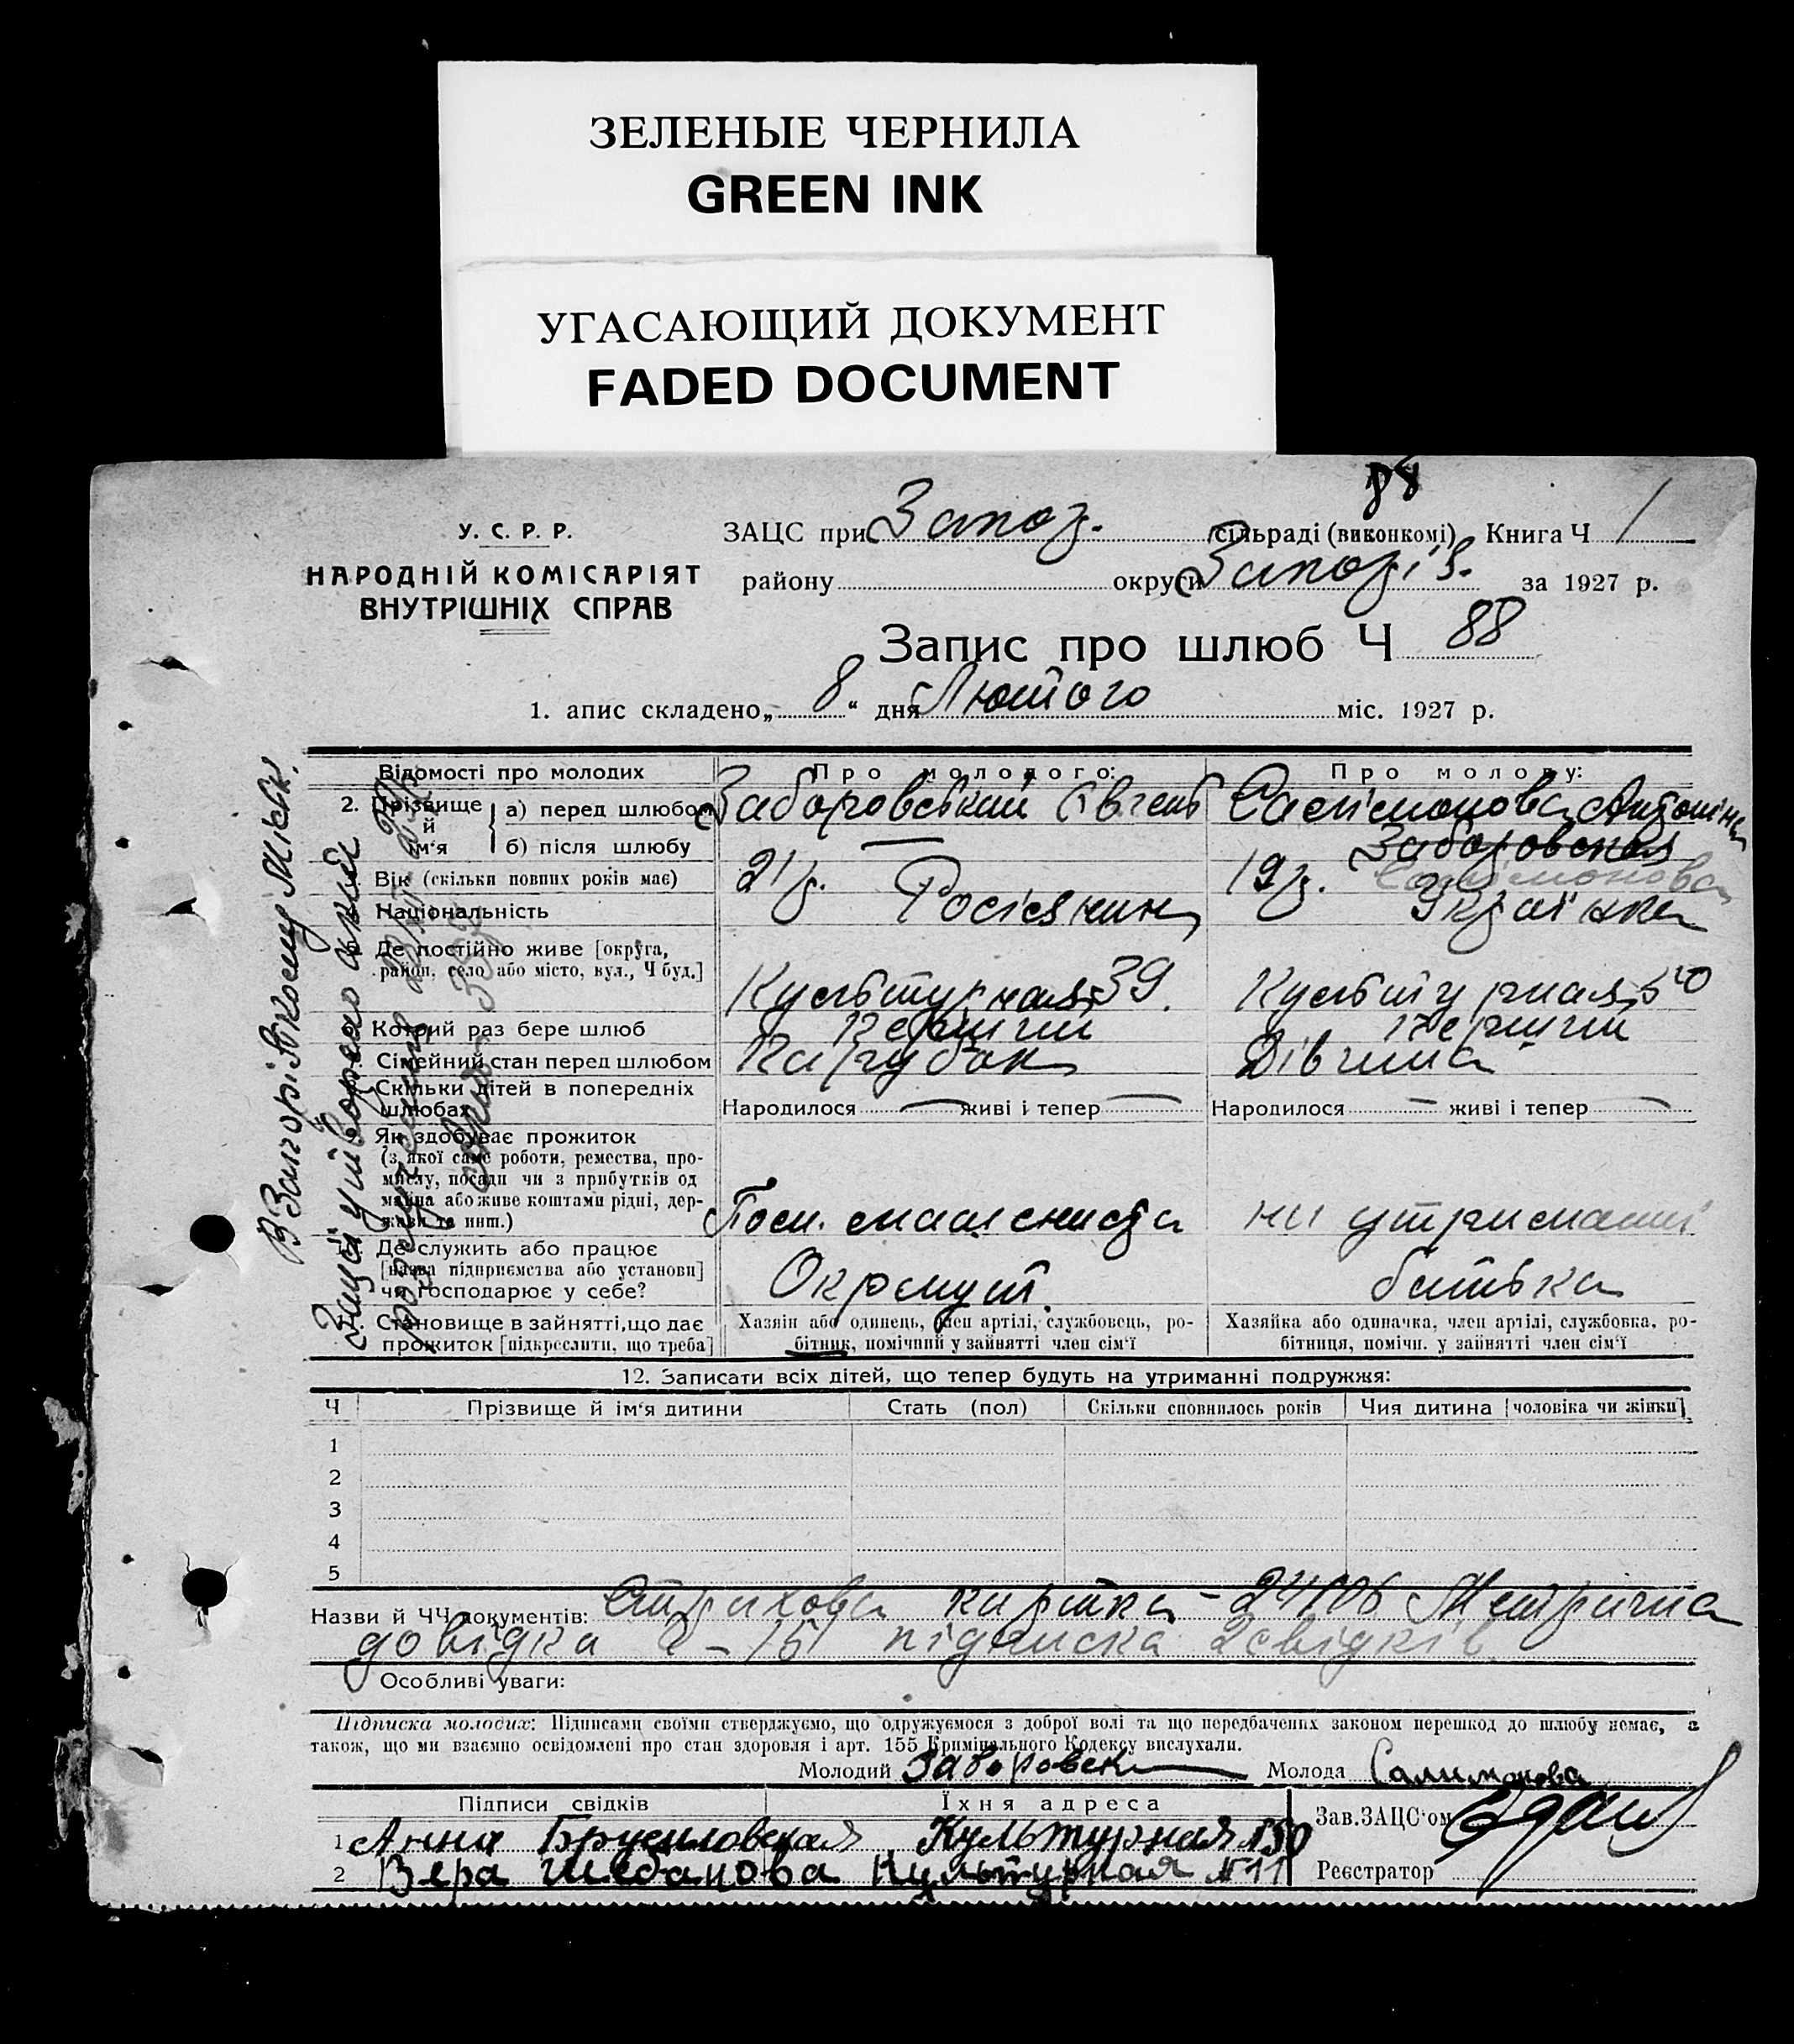 ЗЕЛЕНЫЕ ЧЕРНИЛА
GREEN INK
УГАСАЮЩИЙ ДОКУМЕНТ
FADED DOCUMENT
88
У. С. Р. Р.
НАРОДНІЙ КОМІСАРІЯТ
ВНУТРІШНІХ СПРАВ
ЗАЦС при Запоз. сільраді (виконкомі) Книга Ч 1
району округи Запоріз. за 1927 р.
Запис про шлюб Ч 88
1. апис складено „ 8 “ дня Лютого міс. 1927 р.
Відомості про молодих Про молодого: Про молоду:
2. Прізвище й ім‘я а) перед шлюбом Заборовський Євгень Салімонова Антоніна
б) після шлюбу — Заборовская
Салімонова
Вік (скільки повних років має) 21 р. 19 р.
Національність Росіянин Українка
Де постійно живе [округа,
район, село або місто, вул., Ч буд.] Культурная 39. Культурная 50
Котрий раз бере шлюб Перший Перший
Сімейний стан перед шлюбом Парубок Дівчина
Скільки дітей в попередніх
шлюбах Народилося — живі і тепер — Народилося — живі і тепер —
Як здобуває прожиток
(з якої саме роботи, ремества, про-
мислу, посади чи з прибутків од
майна або живе коштами рідні, дер-
жави та инш.) Пом. машиніста на утриманні
Де служить або працює
[назва підприємства або установи]
чи господарює у себе? батька
Становище в зайнятті, що дає
прожиток [підкреслити, що треба]
Хазяїн або одинець, член артілі, службовець, ро-
бітник, помічний у зайнятті член сім‘ї
Хазяйка або одиначка, член артілі, службовка, ро-
бітниця, помічн. у зайнятті член сім‘ї
12. Записати всіх дітей, що тепер будуть на утриманні подружжя:
Ч Прізвище й ім‘я дитини Стать (пол) Скільки сповнилось років Чия дитина [чоловіка чи жінки]
1
2
3
4
5
Назви й ЧЧ документів: Страхова картка - 24106 Метрична
довідка підписка 2 свідків
Особливі уваги:
Підписка молодих: Підписами своїми стверджуємо, що одружуємося з доброї волі та що передбачених законом перешкод до шлюбу немає, а
також, що ми взаємно освідомлені про стан здоровля і арт. 155 Кримінального Кодексу вислухали.
Молодий Заборовск Молода Салимонова
Підписи свідків Їхня адреса
1 Анна Брусиловская Культурная 50
2 Вера Шебанова Культурная № 11
Зав. ЗАЦС‘ом
Реєстратор
В Запорізькому Міськ.
Зацсі утворено акт
розлучення